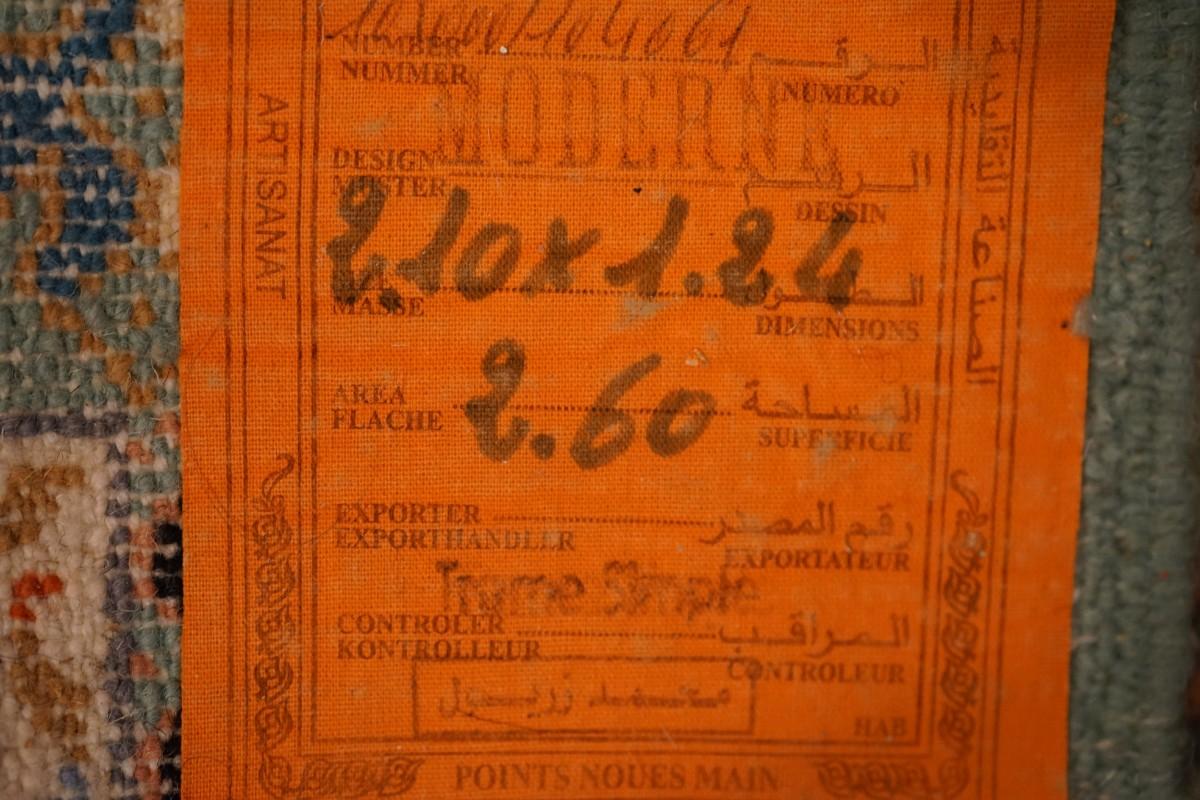 NUMBER الرقم
NUMMER NUMERO
MODERNE
DESIGN الرسم
MUSTER DESSIN
2.10 x 1.24
MASSE DIMENSIONS
AREA المساحة
FLACHE 2.60 SUPERFICIE
EXPORTER رقم المصدر
EXPORTHANDLER EXPORTATEUR
Trame Simple
CONTROLER المراقب
KONTROLLEUR CONTROLEUR
HAB
POINTS NOUES MAIN
ARTISANAT
الصناعة التقليدية